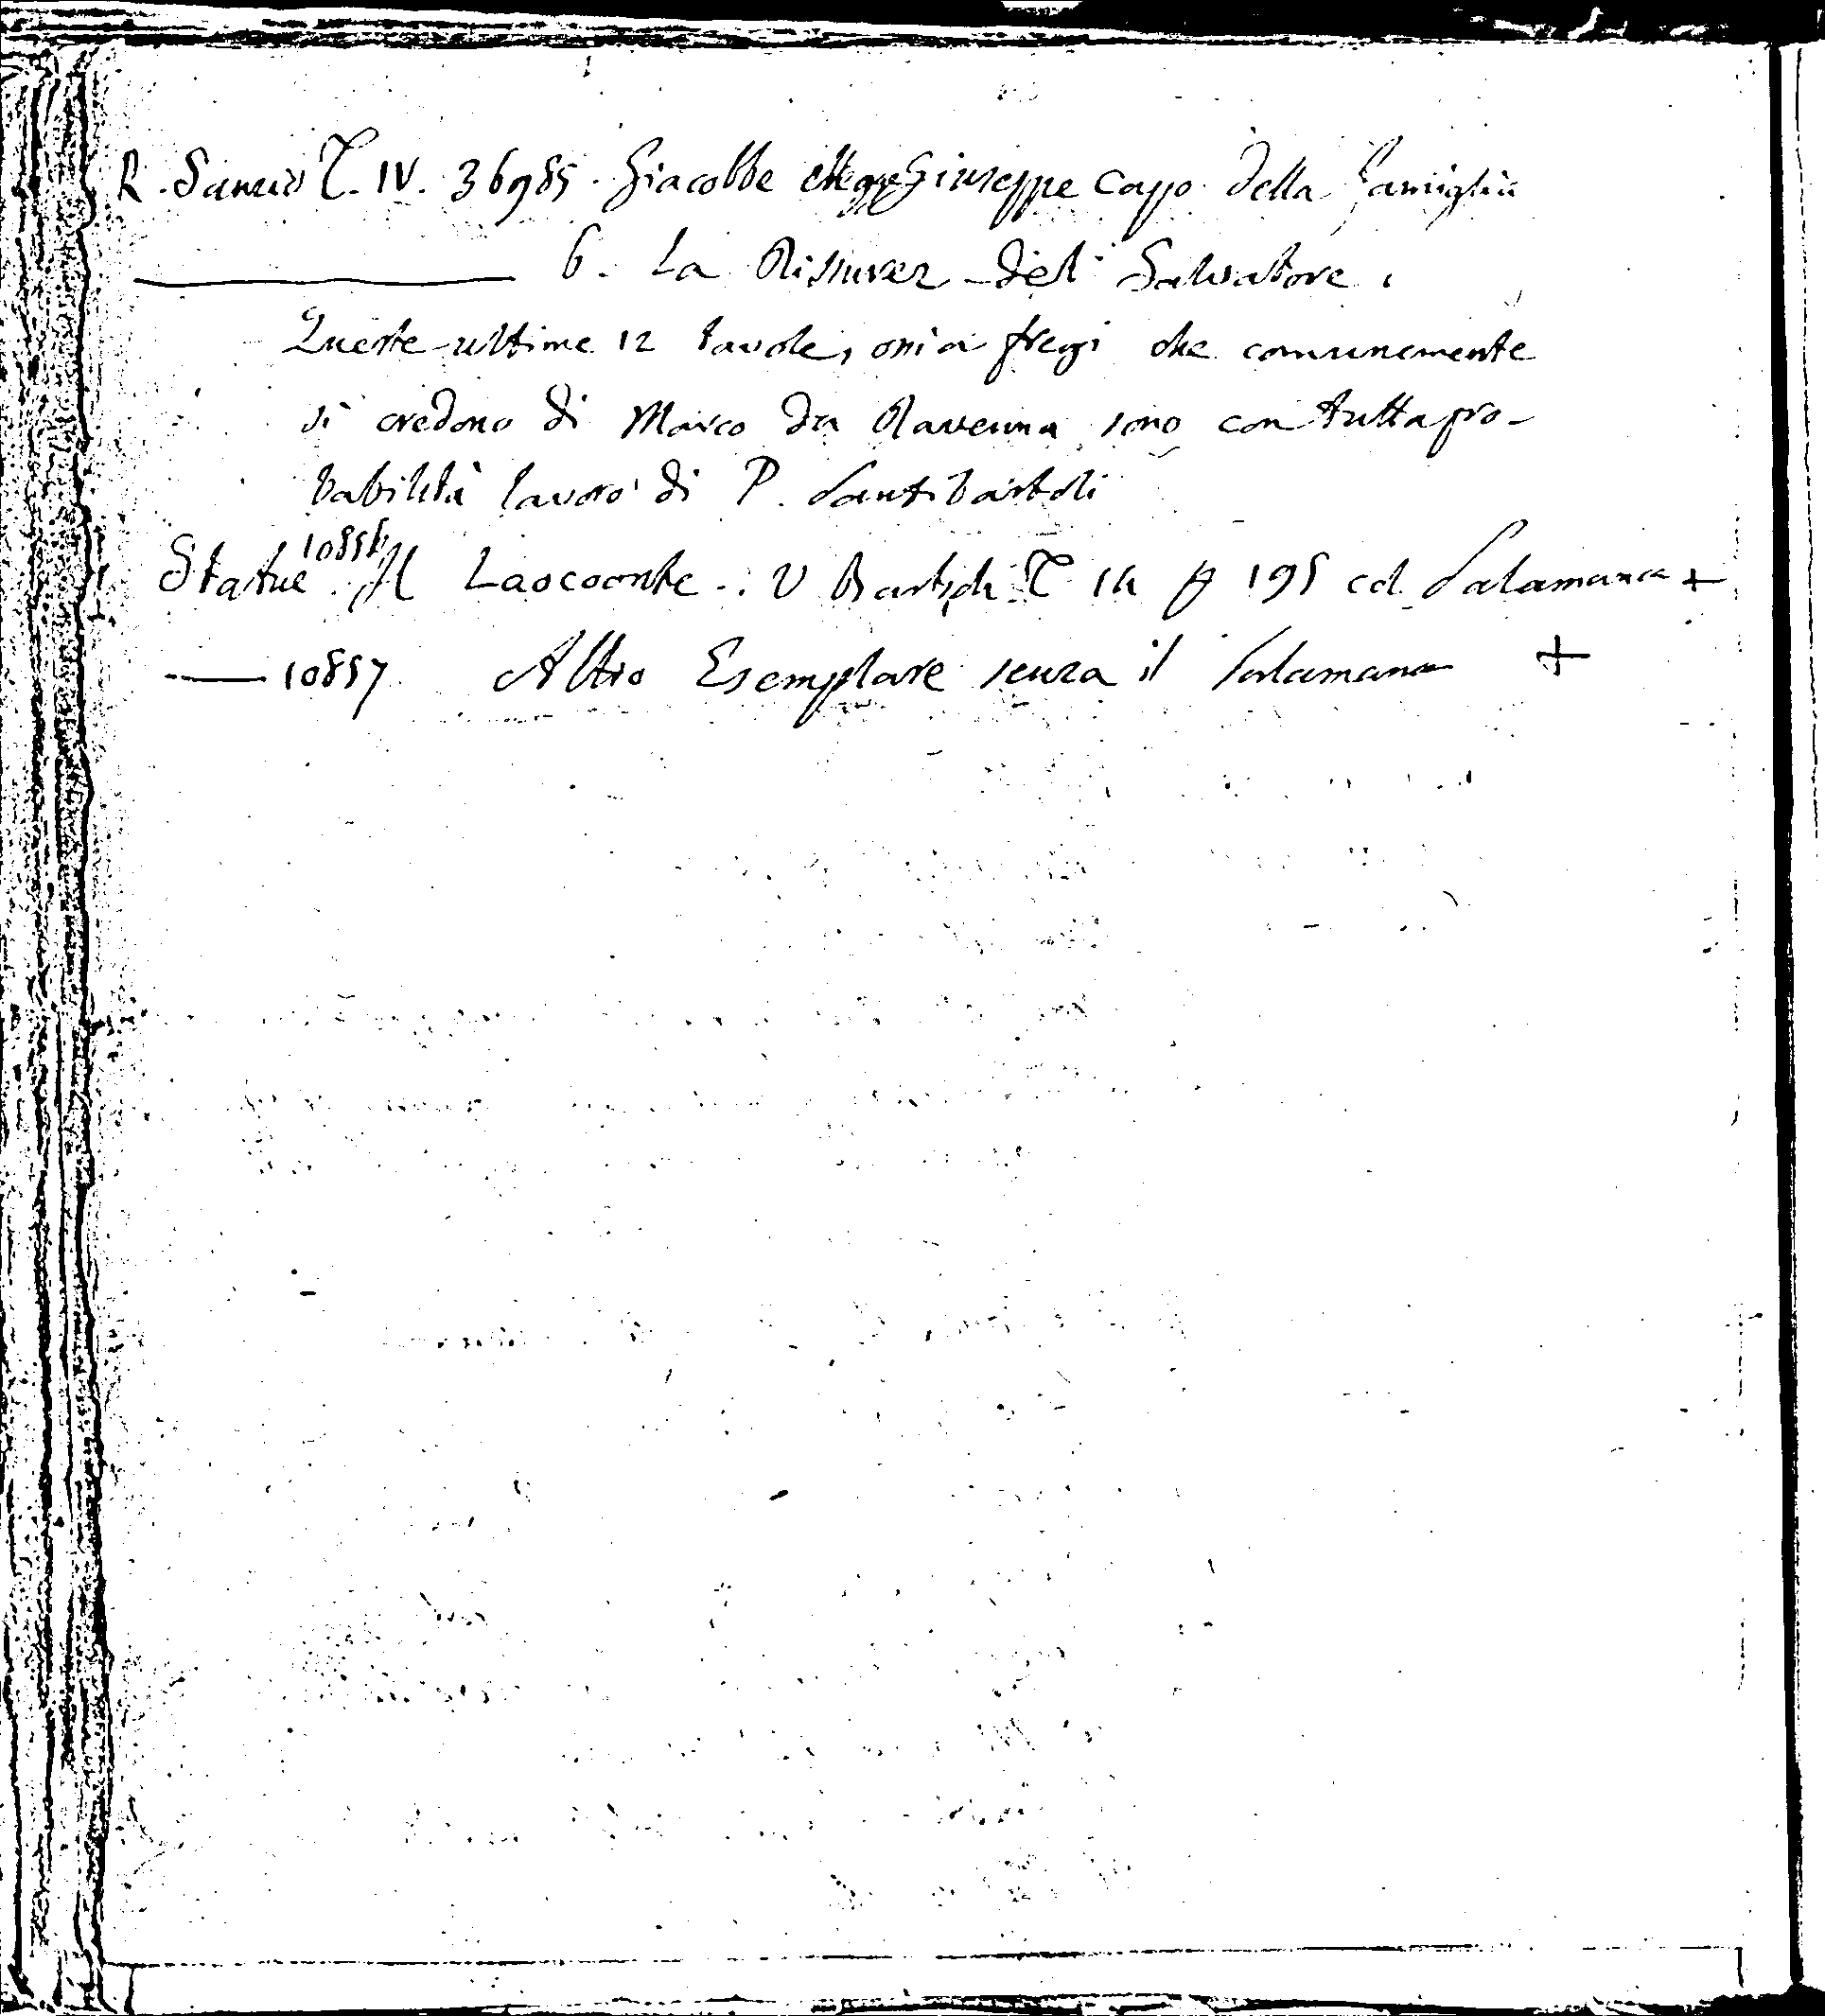 R. Sanzio T. IV. 36985. Giacobbe elegge Giuseppe capo della famiglia
6. La Risurrez del Salvatore.
Queste ultime 12 tavole, ossia fregi che comunemente
si credono di Marco da Ravenna sono con tutta pro-
babilità lavoro di P. Santi Bartoli
Statue 10856 Il Laocoonte. V Bartsch T 14 p 195 col Salamanca +
— 10857 Altro Esemplare senza il Salamanca +